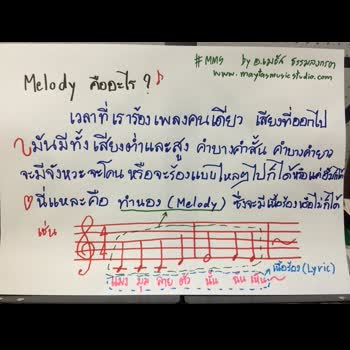 #MMS by อ.เมธัส ธรรมลงกรต
www.maytasmusicstudio.com
Melody คืออะไร?
เวลาที่เราร้องเพลงคนเดียว เสียงที่ออกไป
มันมีทั้งเสียงต่ำและสูง คำบางคำสั้น คำบางคำยาว
จะมีจังหวะจะโคน หรือจะร้องแบบไหลๆไปก็ได้
นี่แหละคือ ทำนอง (Melody) ซึ่งจะมีเนื้อร้องหรือไม่ก็ได้
เช่น
4
4
แมง มุม ลาย ตัว นั้น ฉัน เห็น
เนื้อร้อง (Lyric)